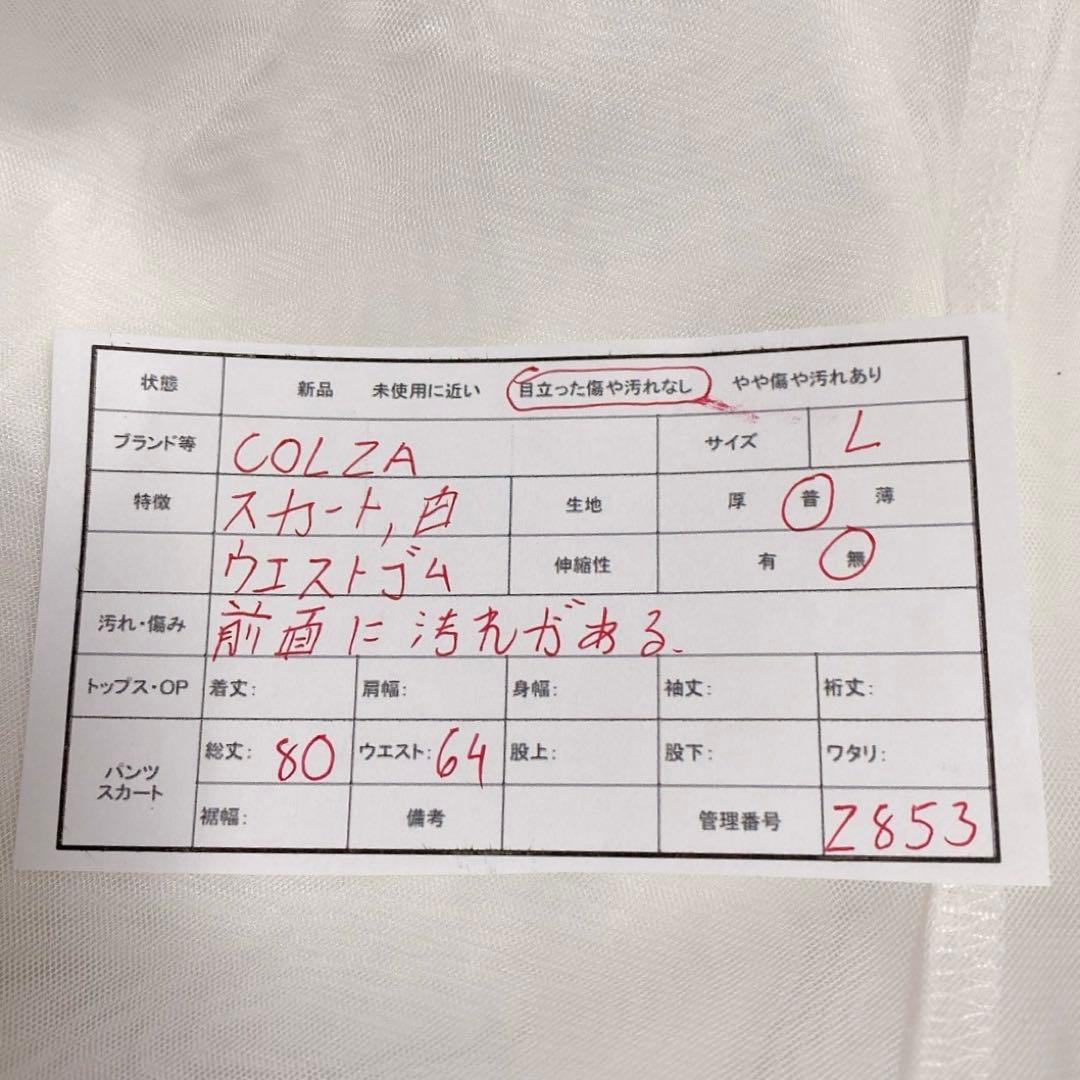 状態 新品 未使用に近い 目立った傷や汚れなし やや傷や汚れあり
ブランド等 COLZA サイズ L
特徴 スカート,白 生地 厚 普 薄
ウエストゴム 伸縮性 有 無
汚れ・傷み 前面に汚れがある.
トップス・OP 着丈: 肩幅: 身幅: 袖丈: 裄丈:
パンツ
スカート
総丈: 80 ウエスト: 64 股上: 股下: ワタリ:
裾幅: 備考 管理番号 2853